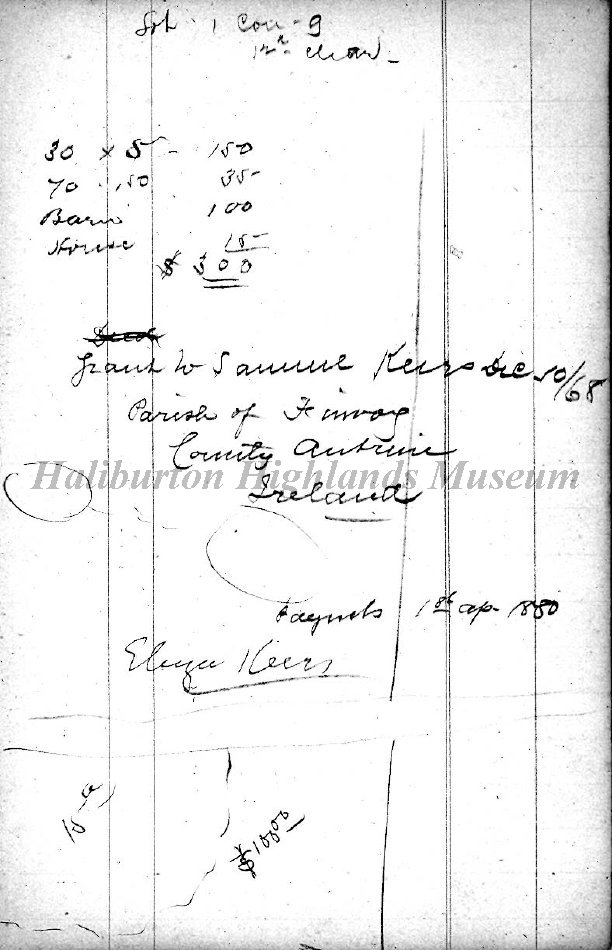 Lot 1 Con - 9
12 a clear -
30 x 5 - 150
70 . 150 35
Barn 100
House 15
$ 300
Deed
Grant to Samuel Keers Dec 10/68
Parish of Finvoy
County Antrim
Haliburton Highlands Museum
Ireland
Paymts 1st ap - 1880
Eliza Keers
15 a
$100.00